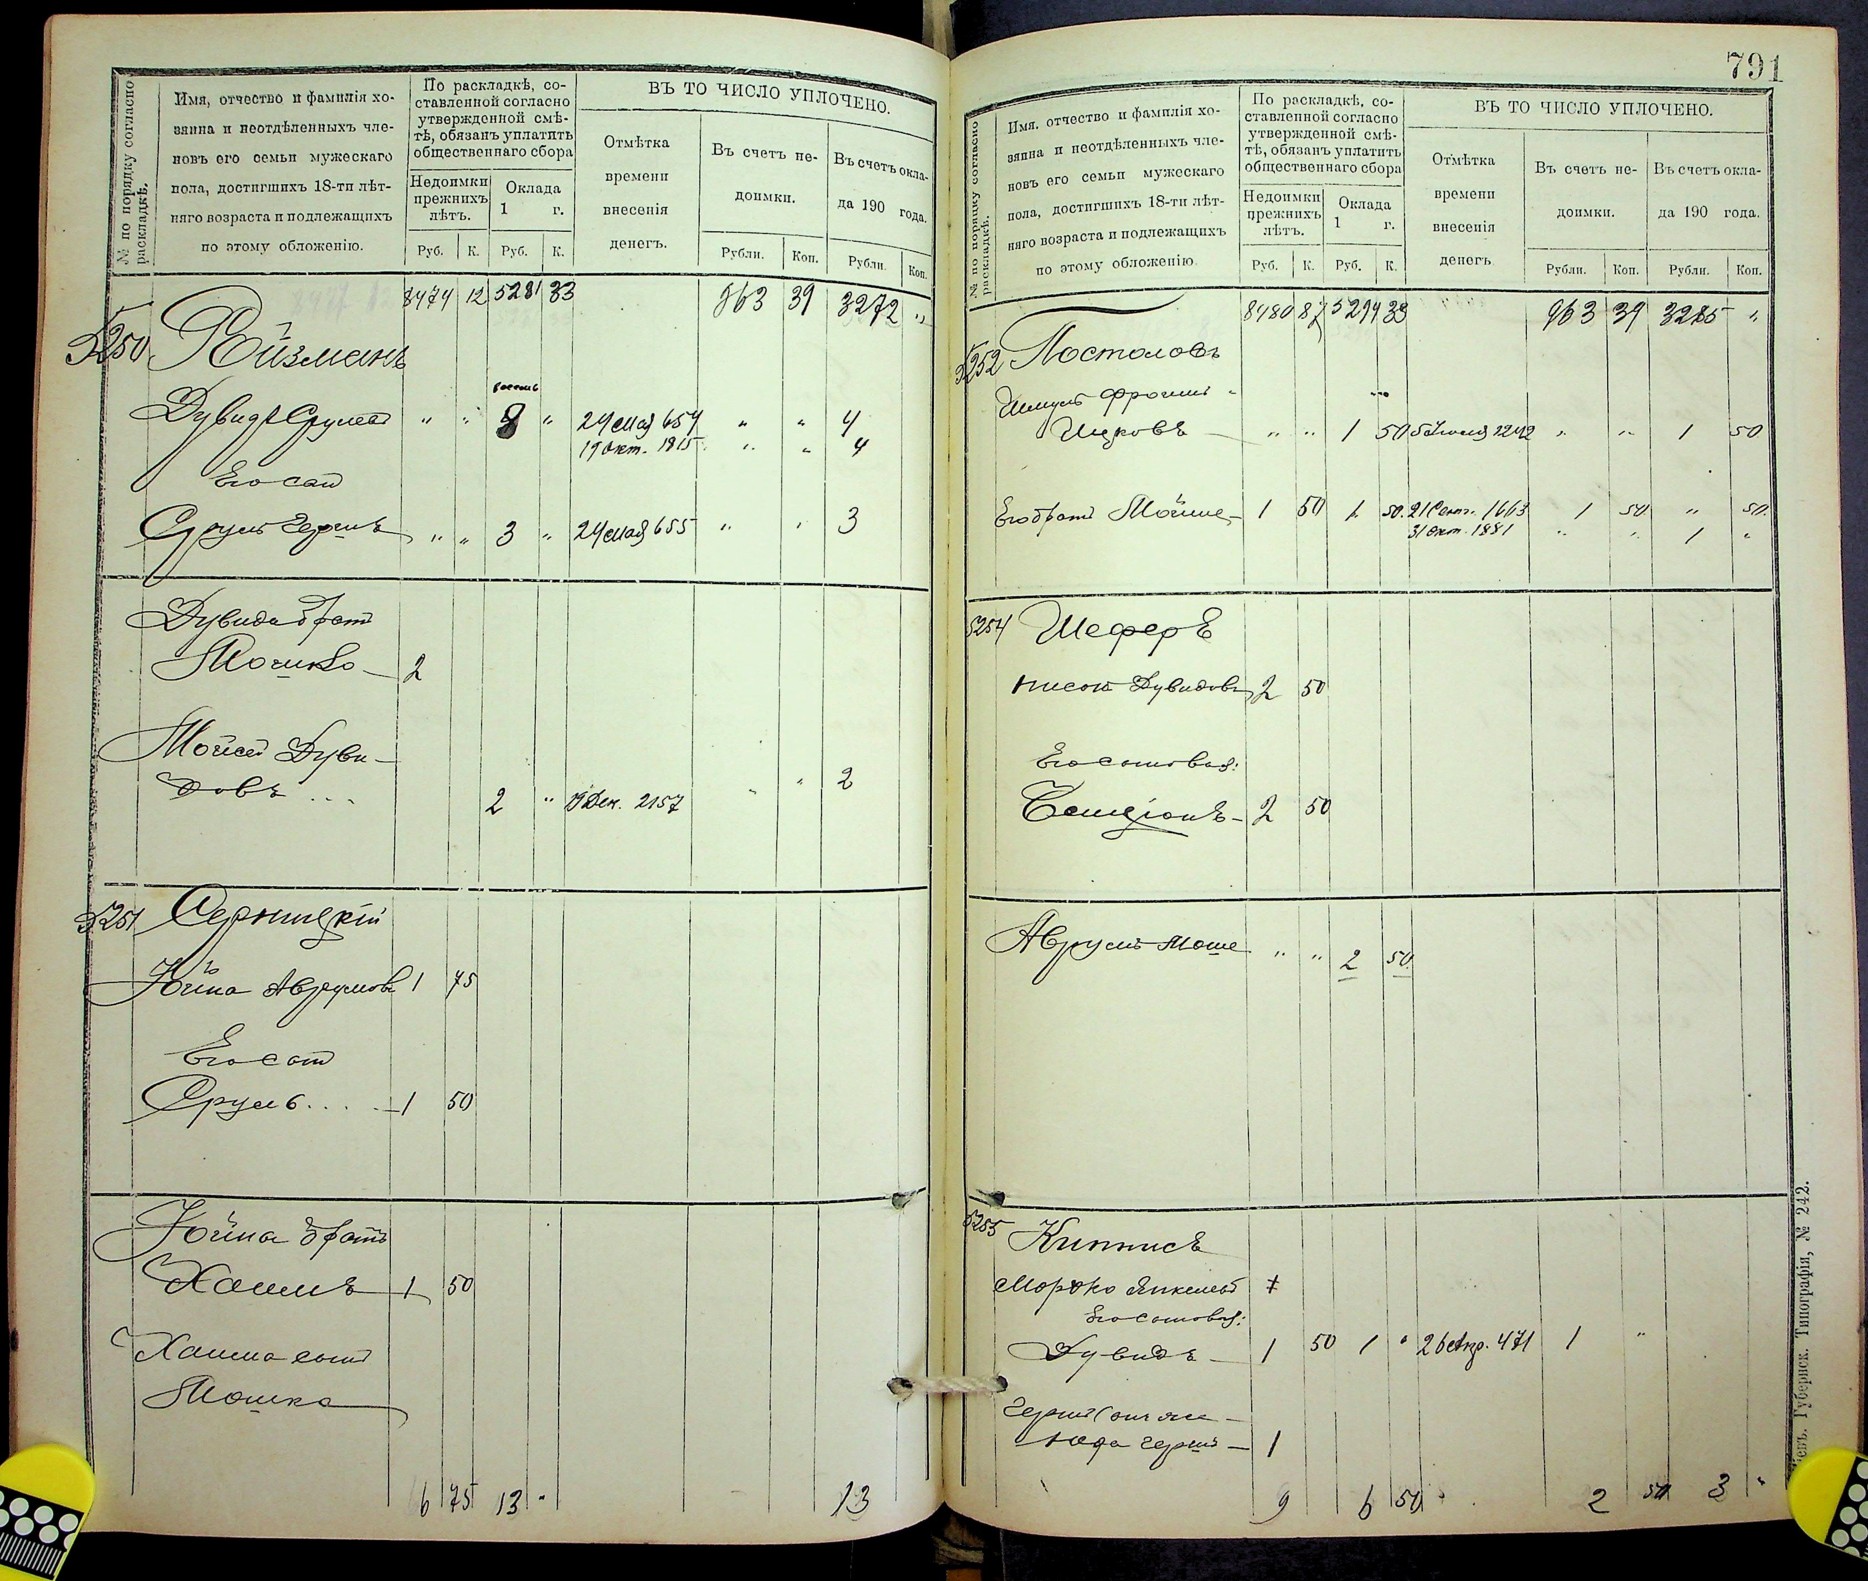 № по порядку согласно раскладкѣ.
Имя, отчество и фамилія хо-
зяина и неотдѣленныхъ чле-
новъ его семьи мужескаго
пола, достигшихъ 18-ти лѣт-
няго возраста и подлежащихъ
по этому обложенію.
По раскладкѣ, со-
ставленной согласно
утвержденной смѣ-
тѣ, обязанъ уплатить
общественнаго сбора
Недоимки
прежнихъ
лѣтъ.
Оклада
1 г.
Руб. К. Руб. К.
ВЪ ТО ЧИСЛО УПЛОЧЕНО.
Отмѣтка
времени
внесенія
денегъ.
Въ счетъ не-
доимки.
Въ счетъ окла-
да 190 года.
Рубли. Коп. Рубли. Коп.
8474 12 5281 33 963 39 3272 "
5250 Ройзманъ
восемь
Дувидъ Срулевъ " " 8 " 24 мая 654 " " 4
19 Окт. 1815 " " 4
Его сын
Сруль Гершъ " " 3 " 24 мая 655 " " 3
Дувида брат
Мошко 2
Мойсей Дуви-
довъ ... 2 " 9 Дек. 2157 " " 2
5251 Серницкій
Юйна Аврумов 1 75
Его сын
Сруль.... 1 50
Юйна братъ
Хаимъ 1 50
Хаима сын
Мошка
6 75 13 " 13
791
№ по порядку согласно раскладкѣ.
Имя, отчество и фамилія хо-
зяина и неотдѣленныхъ чле-
новъ его семьи мужескаго
пола, достигшихъ 18-ти лѣт-
няго возраста и подлежащихъ
по этому обложенію
По раскладкѣ, со-
ставленной согласно
утвержденной смѣ-
тѣ, обязанъ уплатить
общественнаго сбора
Недоимки
прежнихъ
лѣтъ.
Оклада
1 г.
Руб. К. Руб. К.
ВЪ ТО ЧИСЛО УПЛОЧЕНО.
Отмѣтка
времени
внесенія
денегъ
Въ счетъ не-
доимки.
Въ счетъ окла-
да 190 года.
Рубли. Коп. Рубли. Коп.
8480 87 5294 33 963 39 3285 "
5252 Постоловъ
Шмуль Фроим
Ицковъ " " 1 50 2242 " " 1 50
Его брат Мойше 1 50 1 50 21 Сент. 1663 1 50 " 50
31 Окт. 1881 " " 1 "
5254 Шеферъ
Нисон Дувидовъ 2 50
Его сыновья:
Бенціонъ 2 50
Аврумъ Моше " " 2 50
5255 Кипнисъ
Мордко Янкелев
Его сыновья:
Дувидъ 1 50 1 " 26 Апр. 471 1 "
Юда Герш 1
9 6 50 2 50 3 "
Губернск. Типографія, № 242.